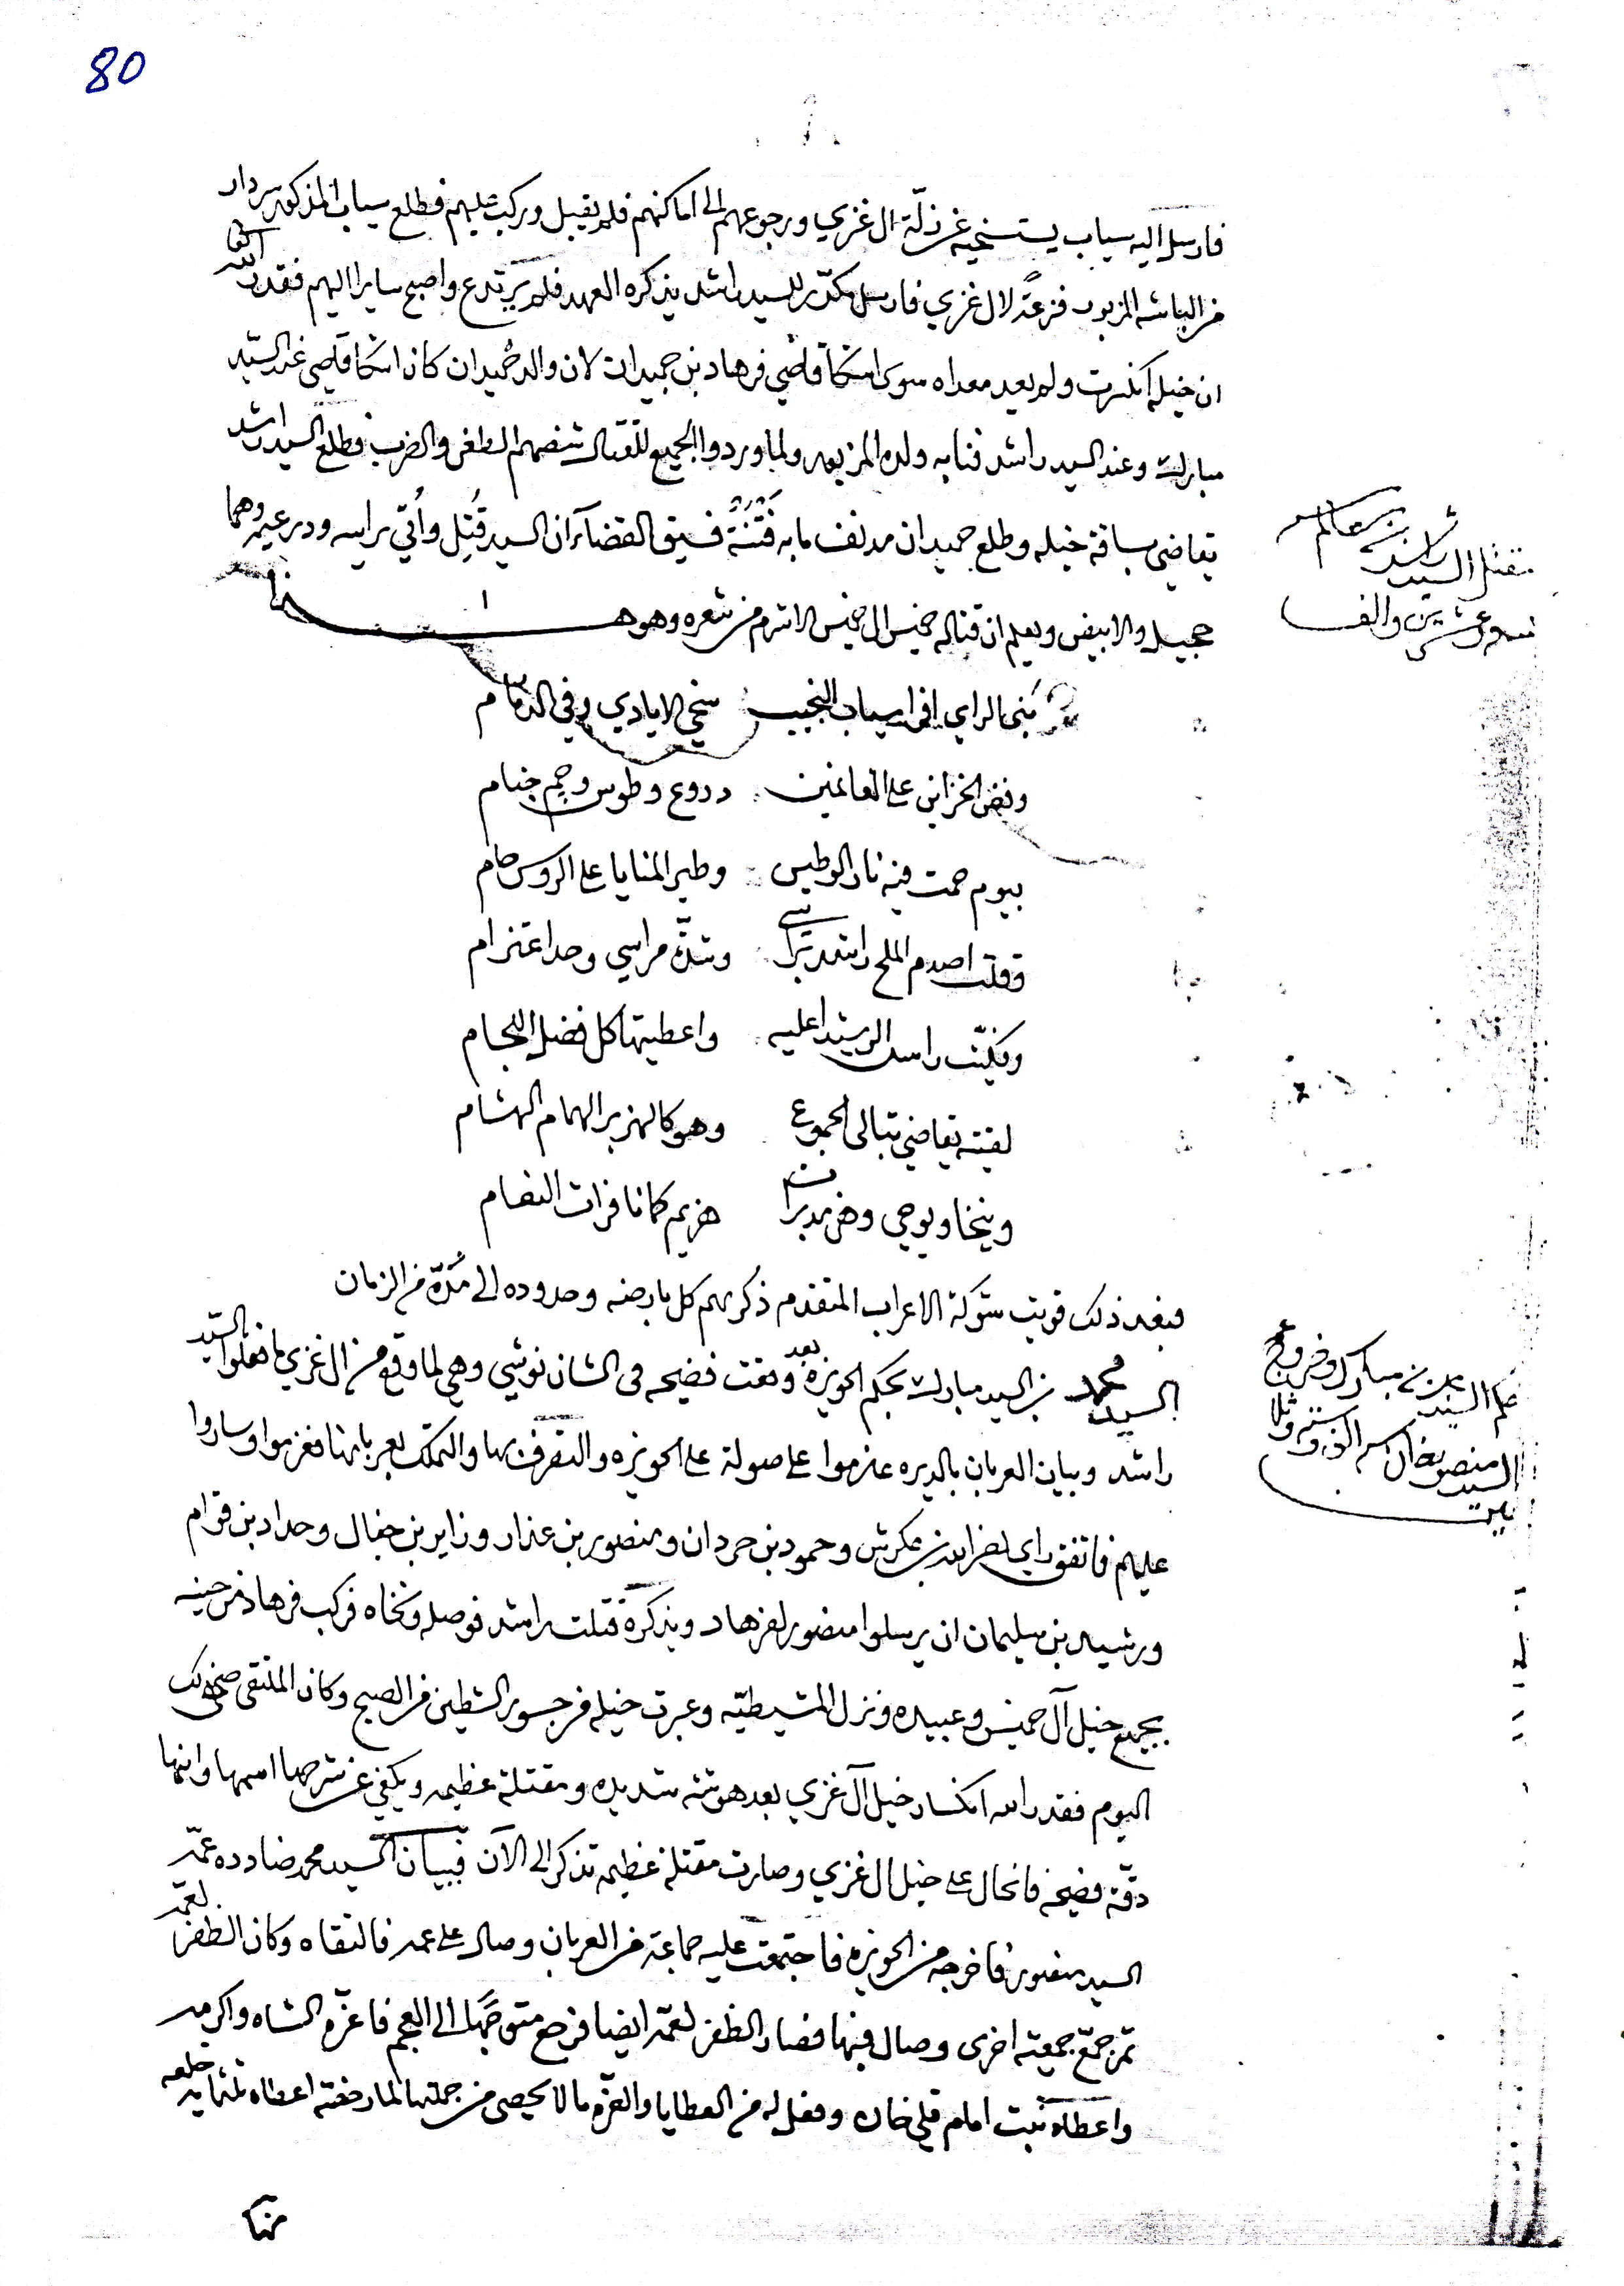 80
فارسل اليه سياب يستنخيه عن زلّة ال غزي ورجوعهم الى اماكنهم فلم يقبل وركب عليهم فطلع سياب المذكور سردار
من الباشه المزبور فزعةً لال غزي فارسل مكدّر للسيد راشد يذكره العهد فلم يرتدع واصبح سايرا اليهم فقدر الله
ان خيله انكسرت ولم يعد معداه سوى اشكا قاضي فرهاد بن حميدان لان والد حميدان كان اشكا قاضي عند السيّد
مبارك وعند السيد راشد فنابه ولده المزبور ولما وردوا الجميع للقتال شنضهم الطعن والضرب فطلع السيد راشد
تقاضي بساقة خيله وطلع حميدان مدنف مابه فتنة فسيق القضا ان السيد قُتِل واُتي براسه ودرعيه وهما
حجيل والابيض ويعلم ان قتاله خميس ال خميس الاشرم من شعره وهو هـذا
مقتل السيد راشد بن سالم
سنه وعشرين والف
بُني الراي افراسياب النجيب سخي الايادي وفي الذمام
وفض الخزاين على الغانمين دروع وطوس وجم خيام
بيوم حمت فيه نار الوطيس وطير المنايا على الروس حام
فقلت اصدم الملح راشد وشدّة مراسي وحد اعتزام
وكلّبت راس الرشيدا عليه واعطيتها كل فضل اللجام
لقيته يقاضي بتالي الجموع وهو كالهزبر الهمام الهشام
وينخا ويوحي وهن هزيم كما نافرات النعام
فبعد ذلك قويت شوكة الاعراب المتقدم ذكرهم كل بارضه وحدوده الى مُدّة من الزمان
السيد محمد بن السيد مبارك بحكم الحويزه بعد وقعت فضيحه في الشان نوشي وهي لما وقع من ال غزي ما فعلوا السيّد
راشد وبيان العربان بالديره عزموا على صولة على الحويزه والتصرف بها والتملك بعربانها فعزموا وساروا
عليهم فاتفق راي نصر الله بن عكرش وحمود بن حردان ومنصور بن عذار وزاير بن جفال وحداد بن قوام
ورشيد بن سليمان ان يرسلوا منصور لفرهاد ويذكره قتلت راشد فوصله ونخاه فركب فرهاد من حينه
بجميع خيل آل خميس وعبيده ونزل المشيطيّه وعبرت خيله من جسور الشطين من الصبح وكان الملتقى ضحى ذلك
اليوم فقدر الله انكسار خيل آل غزي بعد هوشه شديده ومقتلة عظيمه ويكفي عن شرحها اسمها وانها
دقّة فضيحه فانحال على خيل ال غزي وصارت مقتله عظيمه تذكر الى الآن فبيان السيد محمد ضادده عمّه
السيد منصور فاخرجه من الحويزه فاجتمعت عليه جماعة من العربان وصال على عمه فالتقاه وكان الظفر لعمّه
ثم جمّع جمعيه اخرى وصال فيها فصار الظفر لعمّه ايضا فرجع متوجهًا الى العجم فاعزّه الشاه واكرمه
واعطاه بنت امام قلي خان وفعل له من العطايا والعزّه ما لا يحصى من جملتها لما رخصه اعطاه ثلثمايه خلعه
حكم السيد محمد بن مبارك وخروج
السيد منصور